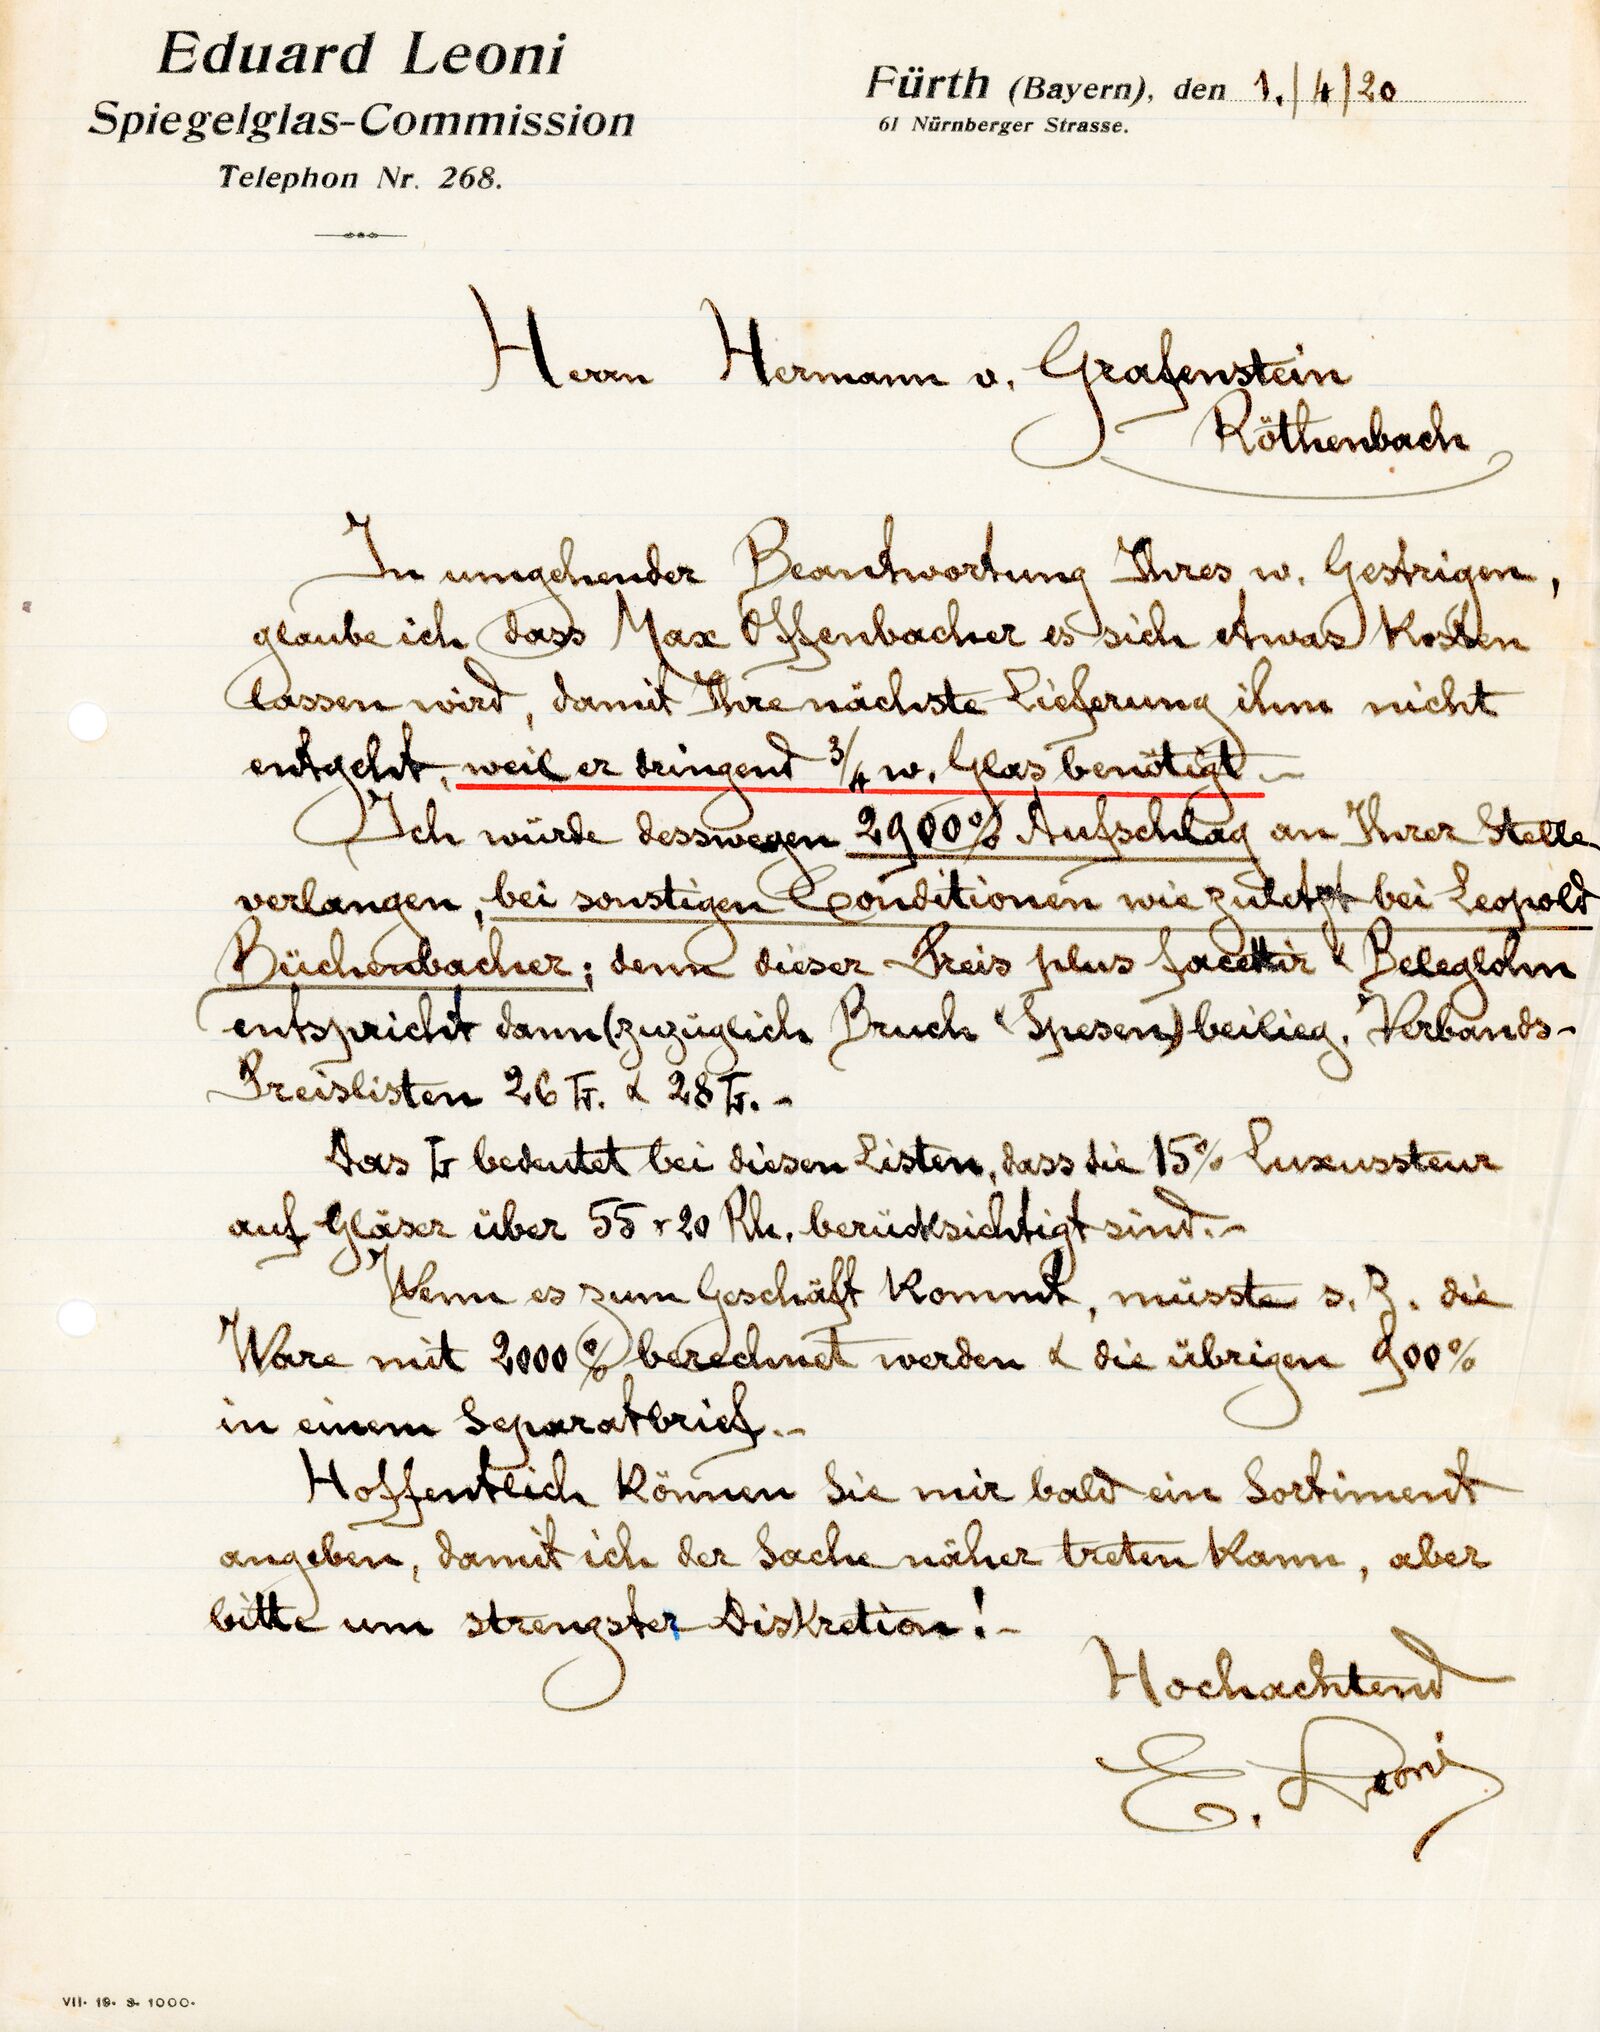 Eduard Leoni
Spiegelglas-Commission
Telephon Nr. 268.
Fürth (Bayern), den 1./4/20
61 Nürnberger Strasse.
Herrn Hermann v. Grafenstein
Röthenbach
In umgehender Beantwortung Ihres w. Gestrigen,
glaube ich dass Max Offenbacher es sich etwas kosten
lassen wird, damit Ihre nächste Lieferung ihm nicht
entgeht, weil er dringend 3/4 w. Glas benötigt.-
Ich würde desswegen 2900% Aufschlag an Ihrer Stelle
verlangen, bei sonstigen Conditionen wie zuletzt bei Leopold
Büchenbacher; denn dieser Preis plus facettir & Beleglohn
entspricht dann (zuzüglich Bruch & Spesen) beilieg. Verbands-
Preislisten 26 & 28
Das bedeutet bei diesen Listen, dass die 15% Luxussteur
auf Gläser über 55 + 20 Rh. berücksichtigt sind.-
Wenn es zum Geschäft kommt, müsste s. Z. die
Ware mit 2000% berechnet werden & die übrigen 900%
in einem Separatbrief.-
Hoffentlich können Sie mir bald ein Sortiment
angeben, damit ich der Sache näher treten kann, aber
bitte um strengster Diskretion!-
Hochachtend
E. Leoni
VII. 19. 1000.